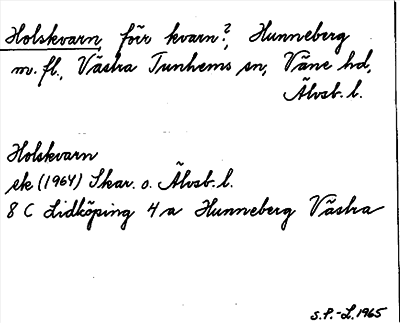 Holskvarn, förr kvarn?, Hunneberg
m.fl., Västra Tunhems sn, Väne hd,
Älvsb. l.
Holskvarn
ek (1964) Skar. o. Älvsb. l.
8 C Lidköping 4 a Hunneberg Västra
S.P.-L. 1965